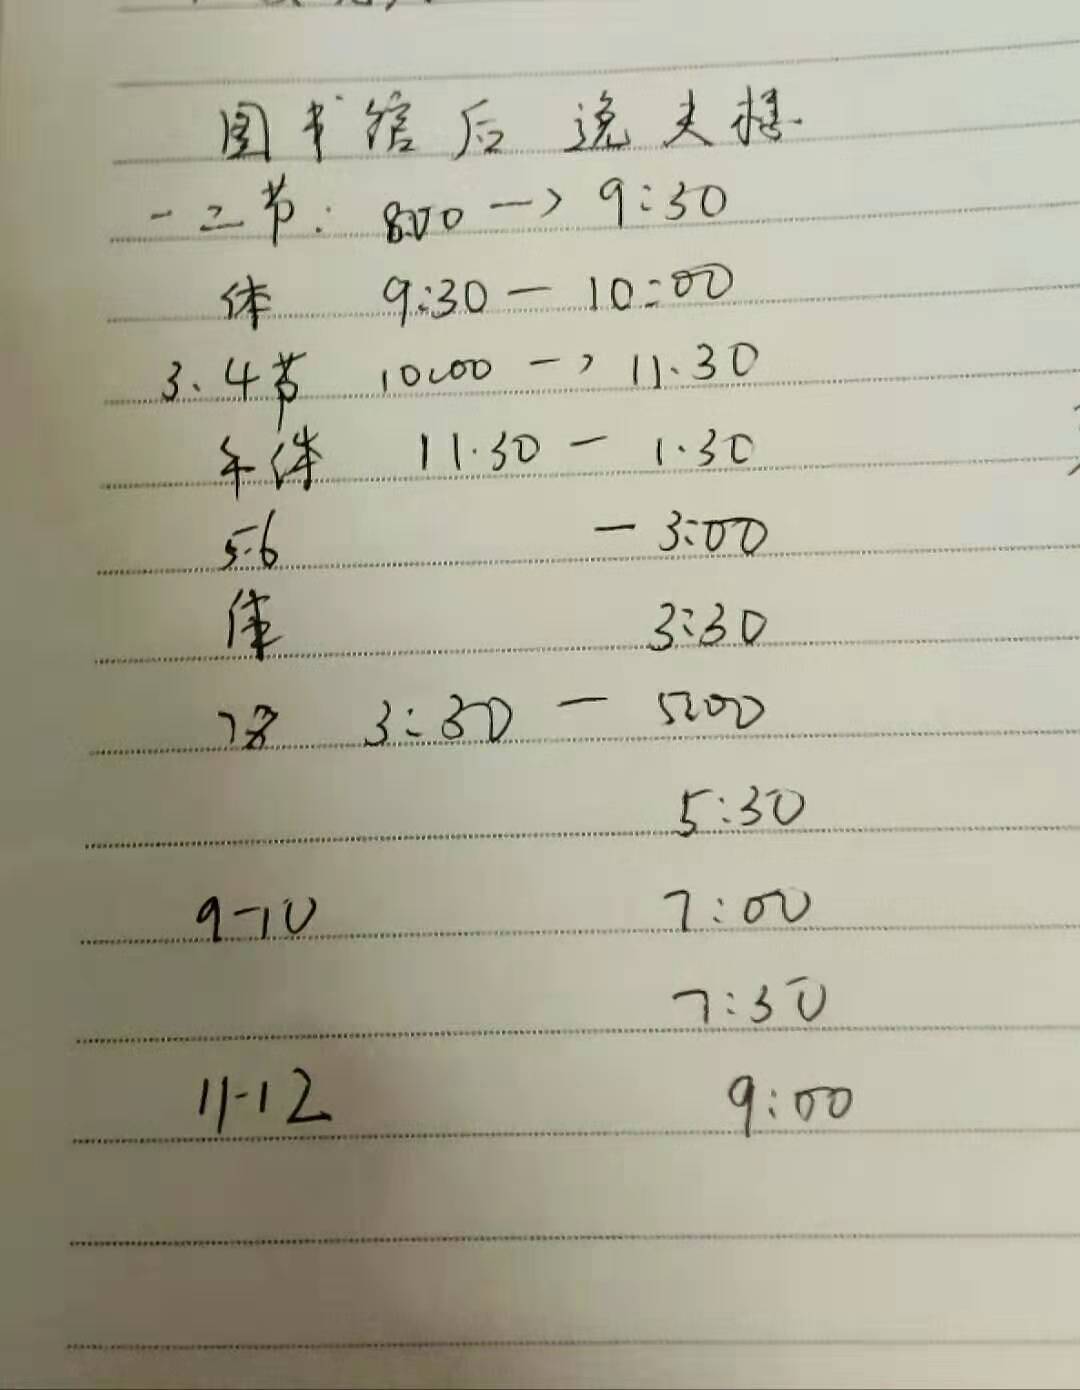 图书馆后 逸夫楼.
一二节: 8:00 → 9:30
休 9:30 — 10:00
3.4节 10:00 → 11.30
午休 11.30 — 1.30
5.6 — 3:00
休 3:30
7.8 3:30 — 5:00
5:30
9-10 7:00
7:30
11-12 9:00